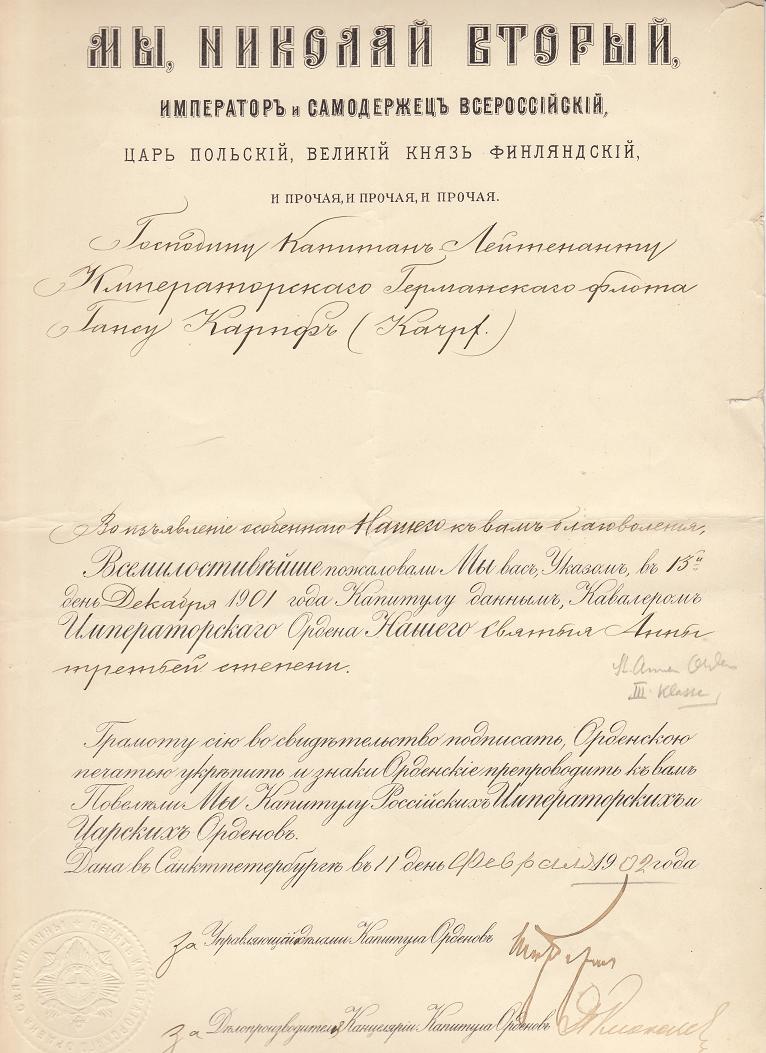 МЫ, НИКОЛАЙ ВТОРЫЙ,
ИМПЕРАТОРЪ и САМОДЕРЖЕЦЪ ВСЕРОССІЙСКІЙ,
ЦАРЬ ПОЛЬСКІЙ, ВЕЛИКІЙ КНЯЗЬ ФИНЛЯНДСКІЙ,
И ПРОЧАЯ, И ПРОЧАЯ, И ПРОЧАЯ.
Господину Капитанъ-Лейтенанту
Императорскаго Германскаго флота
Гансу Карпфъ (Karpf.)
Во изъявленіе особеннаго Нашего къ вамъ благоволенія,
Всемилостивѣйше пожаловали Мы васъ, Указомъ, въ 13й
день Декабря 1901 года Капитулу даннымъ, Кавалеромъ
Императорскаго Ордена Нашего Святыя Анны
третьей степени.
St. Annen Orden
III. Klasse
Грамоту сію во свидѣтельство подписать, Орденскою
печатью укрѣпить и знаки Орденскіе препроводить къ вамъ
Повелѣли Мы Капитулу Россійскихъ Императорскихъ и
Царскихъ Орденовъ.
Дана въ Санктпетербургѣ въ 11 день Февраля 1902 года
за Управляющій дѣлами Капитула Орденовъ
за Дѣлопроизводителя Канцеляріи Капитула Орденовъ